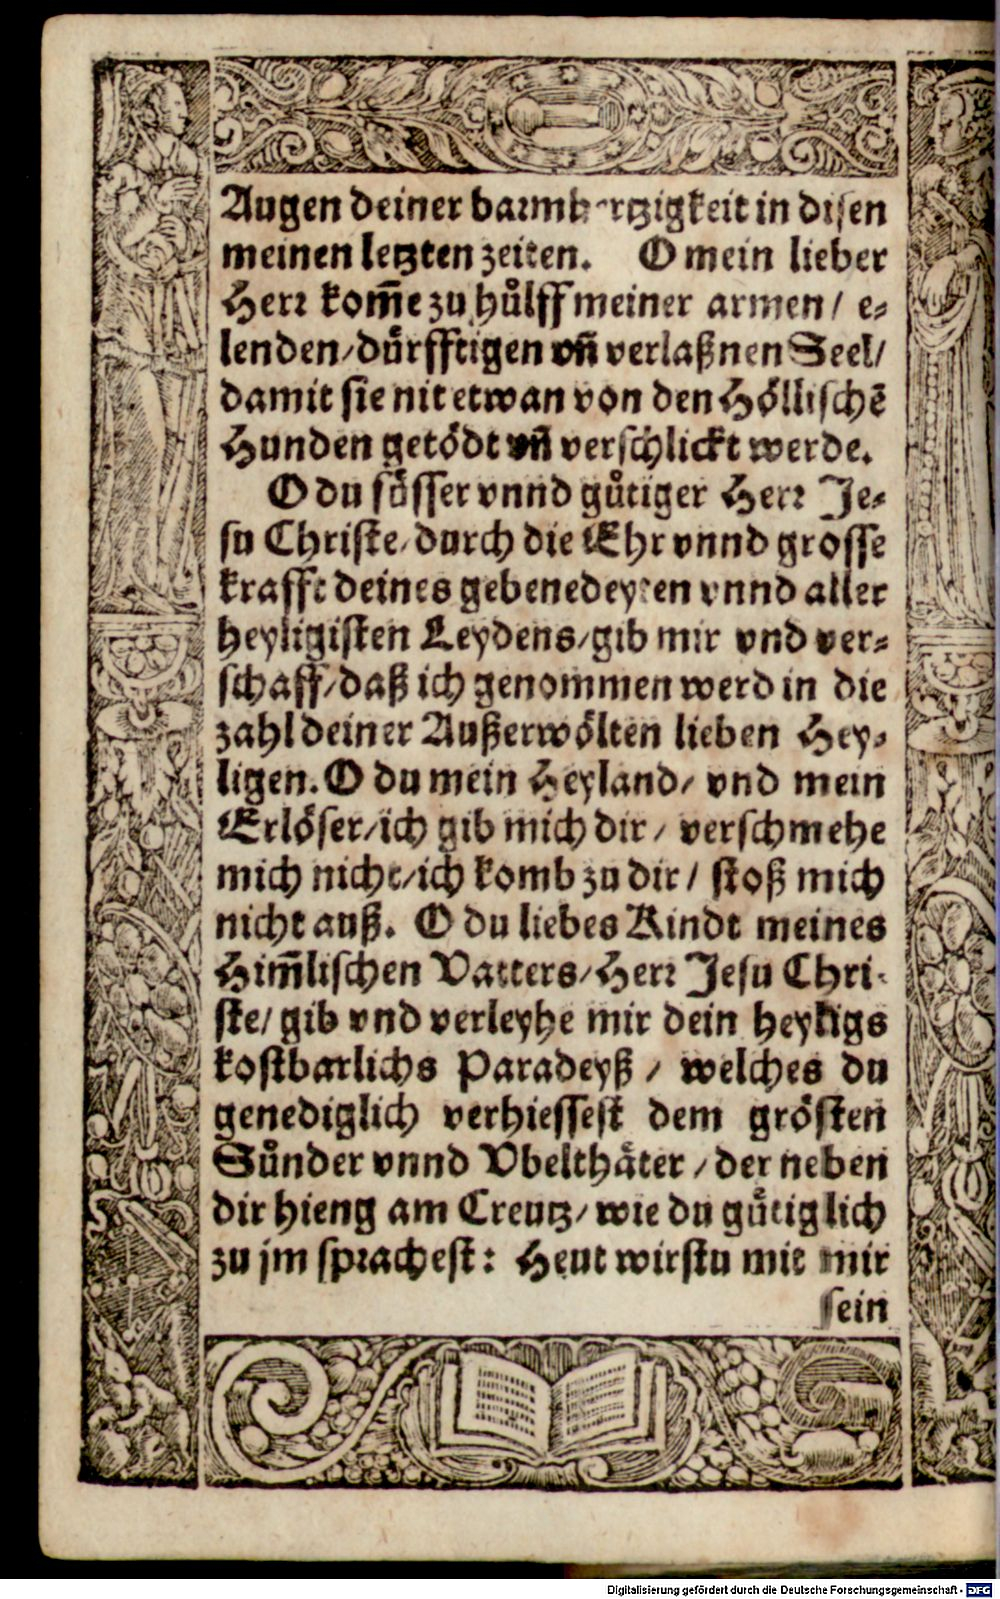 Augen deiner barmhertzigkeit in disen
meinen letzten zeiten. O mein lieber
Herr kom̃e zu hůlff meiner armen/ e-
lenden/dürfftigen vñ verlaßnen Seel/
damit sie nit etwan von den Höllischẽ
Hunden getödt vñ verschlickt werde.
O du süsser vnnd gůtiger Herr Je-
su Christe/durch die Ehr vnnd grosse
krafft deines gebenedeyten vnnd aller
heyligisten Leydens/gib mir vnd ver-
schaff/daß ich genommen werd in die
zahl deiner Außerwölten lieben Hey-
ligen. O du mein Heyland/ vnd mein
Erlöser/ich gib mich dir/ verschmehe
mich nicht/ich komb zu dir/ stoß mich
nicht auß. O du liebes Kindt meines
Him̃lischen Vatters/Herr Jesu Chri-
ste/ gib vnd verleyhe mir dein heyligs
kostbarlichs Paradeyß/ welches du
genediglich verhiessest dem grösten
Sůnder vnnd Vbelthäter/der neben
dir hieng am Creutz/wie du gůtiglich
zu jm sprachest: Heut wirstu mit mir
sein
Digitalisierung gefördert durch die Deutsche Forschungsgemeinschaft - DFG